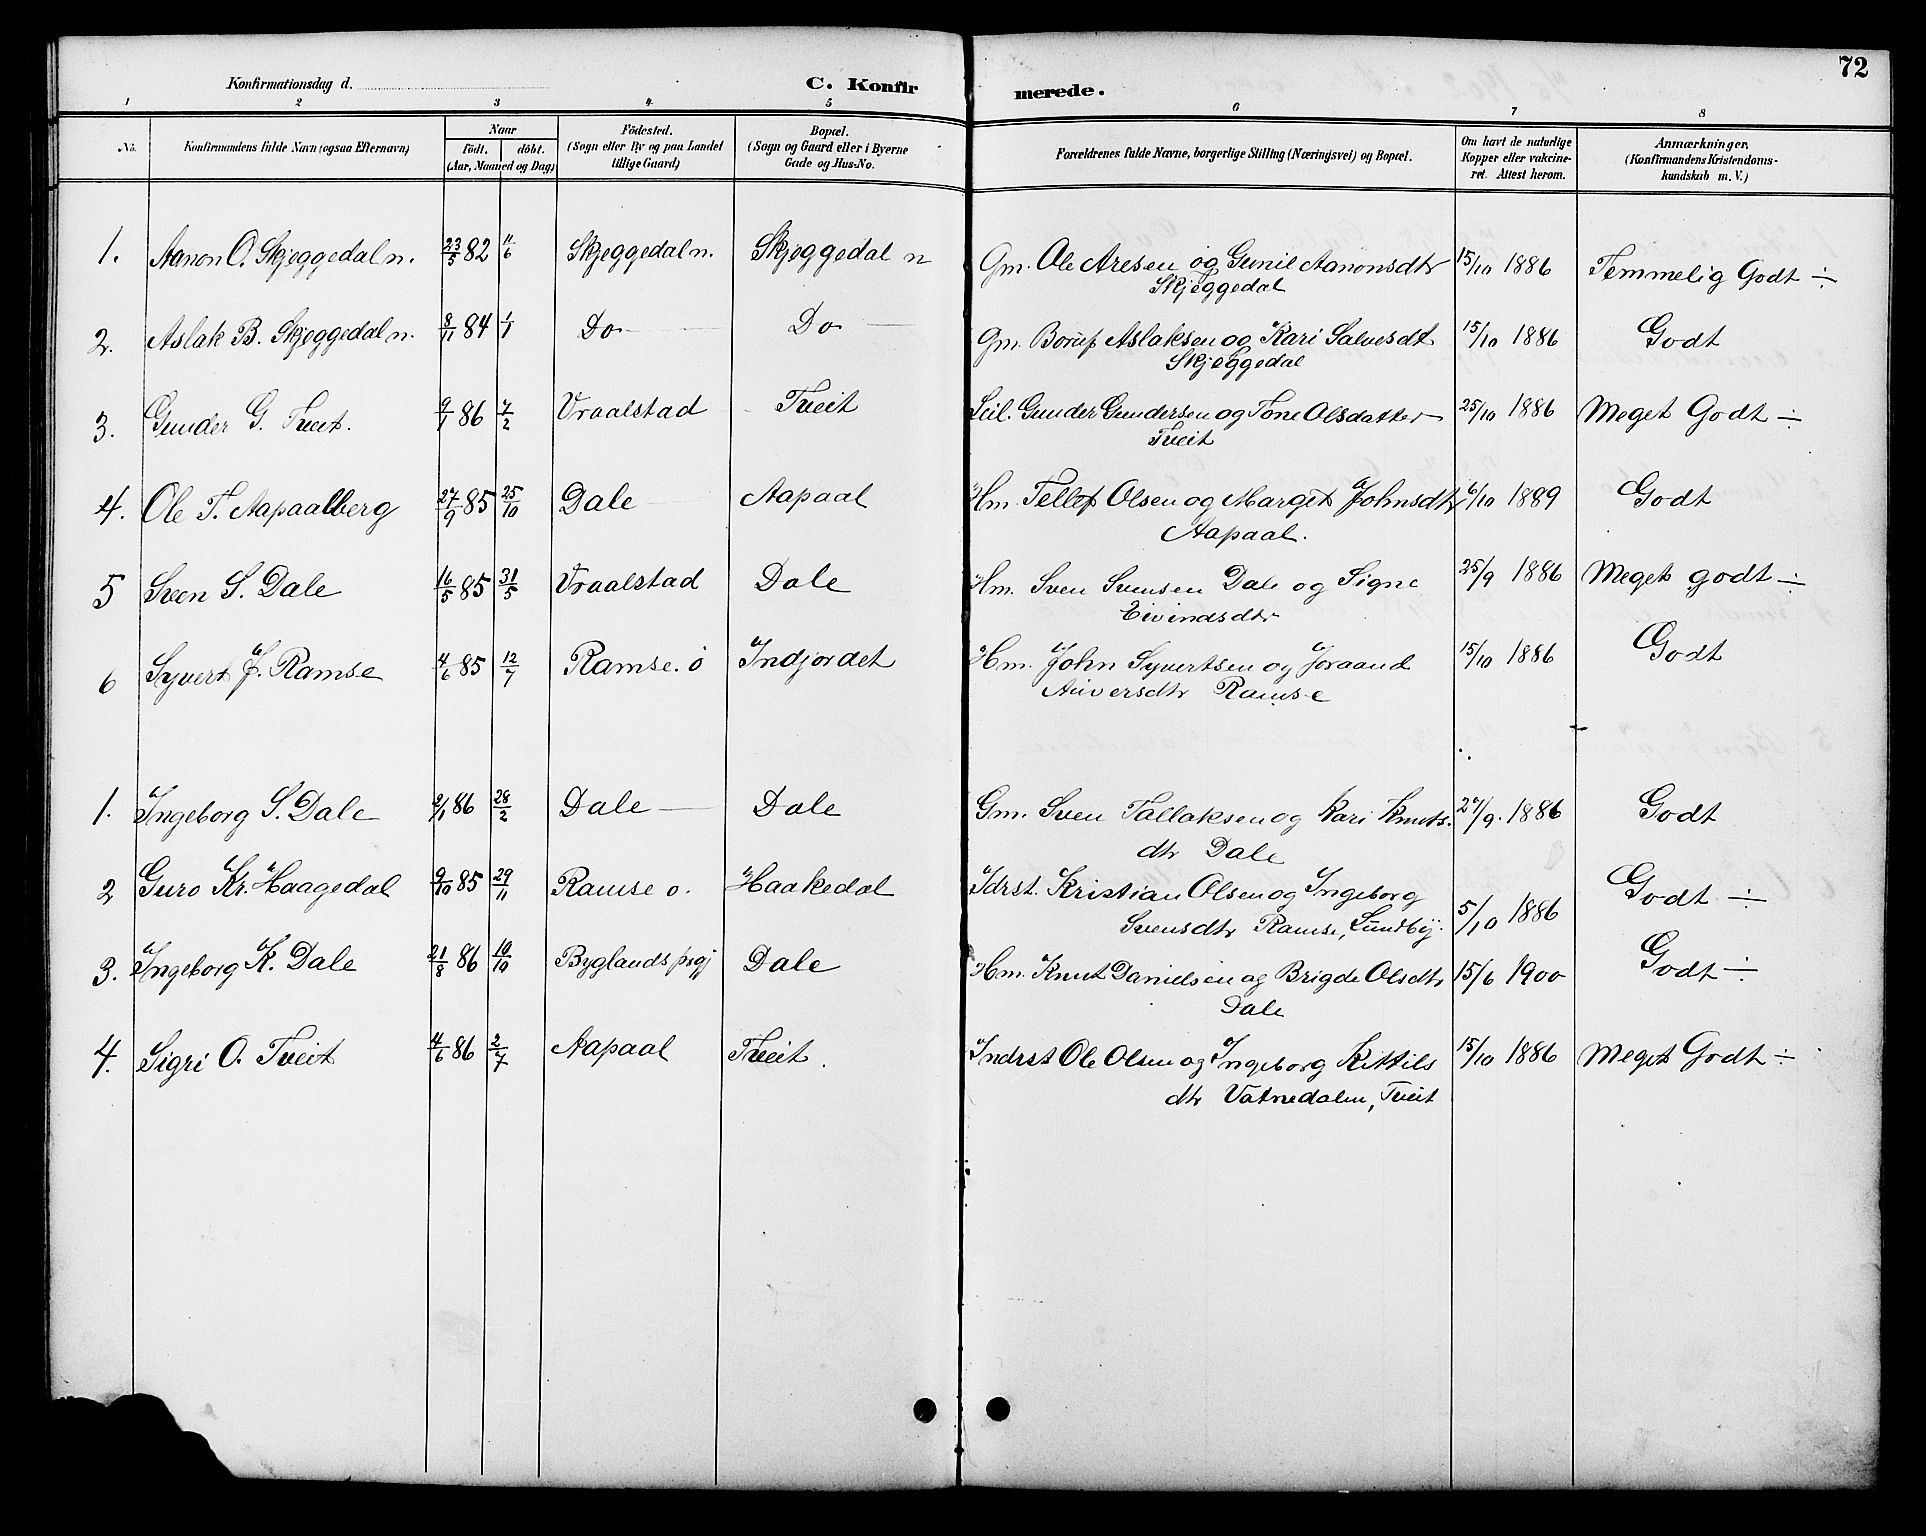 72
Konfirmationsdag d.
C. Konfirmerede.
1 2 3 4 5 6 7 8
No. Konfirmandens fulde Navn (ogsaa Efternavn) Naar født. døbt. (Aar, Maaned og Dag) Födested. (Sogn eller By og paa Landet tillige Gaard) Bopæl. (Sogn og Gaard eller i Byerne Gade og Hus-No. Forældrenes fulde Navne, borgerlige Stilling (Næringsvei) og Bopæl. Om havt de naturlige Kopper eller vakcineret. Attest herom. Anmærkninger, (Konfirmandens Kristendomskundskab m. V.)
1. Aanon O. Skjeggedal n. 23/5 82 11/6 Skjeggedal n. Skjeggedal n Gm. Ole Aresen og Gunil Aanonsdtr 15/10 1886 Temmelig Godt ÷
Skjeggedal
2. Aslak B. Skjeggedal n. 8/11 84 1/1 Do Do Gm. Børup Aslaksen og Kari Salvesdt 15/10 1886 Godt
Skjeggedal
3. Gunder G. Tveit. 9/1 86 7/2 Vraalstad Tveit Leil. Gunder Gundersen og Tone Olsdatter 25/10 1886 Meget Godt ÷
Tveit
4. Ole T. Aapaalberg 27/9 85 25/10 Dale Aapaal Hm. Tellef Olsen og Marget Johnsdtr 6/10 1889 Godt
Aapaal.
5 Sven S. Dale 16/5 85 31/5 Vraalstad Dale Hm. Sven Svensen Dale og Signe 25/9 1886 Meget godt ÷
Eivindsdtr
6 Syvert J. Ramse 4/6 85 12/7 Ramse. ø Indjordet Hm. John Syvertsen og Joraand 15/10 1886 Godt
Anversdtr Ramse
1. Ingeborg S. Dale 2/1 86 28/2 Dale Dale Gm. Sven Tallaksen og Kari Knuts. 27/9. 1886 Godt
dtr Dale
2 Guro Kr. Haagedal 9/10 85 29/11 Ramse ø. Haakedal Idrst. Kristian Olsen og Ingeborg Godt ÷
Svensdtr Ramse, Lundby. 5/10 1886
3. Ingeborg K. Dale 21/8 86 10/10 Byglands prgj Dale Hm. Knut Danielsen og Brigde Olsdtr 15/6 1900 Godt ÷
Dale
4. Sigri O. Tveit 4/6 86 2/7 Aapaal Tveit. Indrst Ole Olsen og Ingeborg Kittils 15/10 1886 Meget Godt ÷
dtr Vatnedalen, Tveit